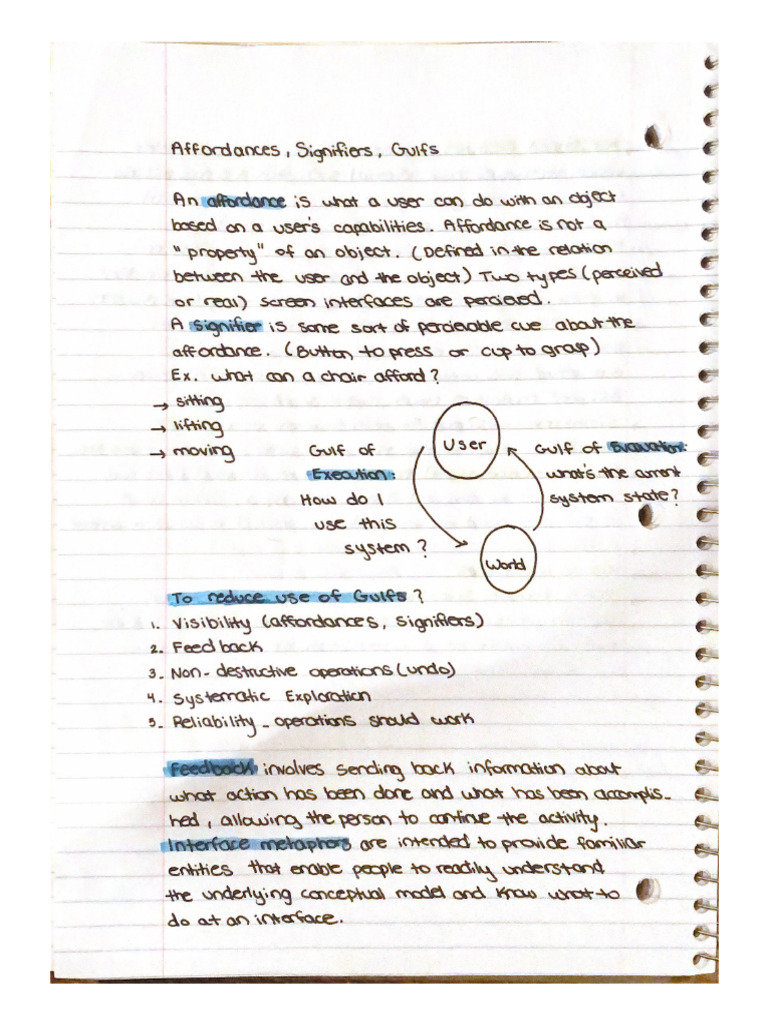 Affordances, Signifiers, Gulfs
An affordance is what a user can do with an object
based on a user's capabilities. Affordance is not a
"property" of an object. (Defined in the relation
between the user and the object) Two types (perceived
or real) screen interfaces are percieved.
A signifier is some sort of percievable cue about the
affordance. (Button to press or cup to grasp)
Ex. what can a chair afford?
→ sitting
→ lifting
→ moving
Gulf of
Execution:
How do I
use this
system?
User
World
Gulf of Evaluation:
what's the current
system state?
To reduce use of Gulfs?
1. Visibility (affordances, signifiers)
2. Feedback
3. Non-destructive operations (undo)
4. Systematic Exploration
5. Reliability - operations should work
Feedback involves sending back information about
what action has been done and what has been accomplis-
hed, allowing the person to continue the activity.
Interface metaphors are intended to provide familiar
entities that enable people to readily understand
the underlying conceptual model and know what to
do at an interface.